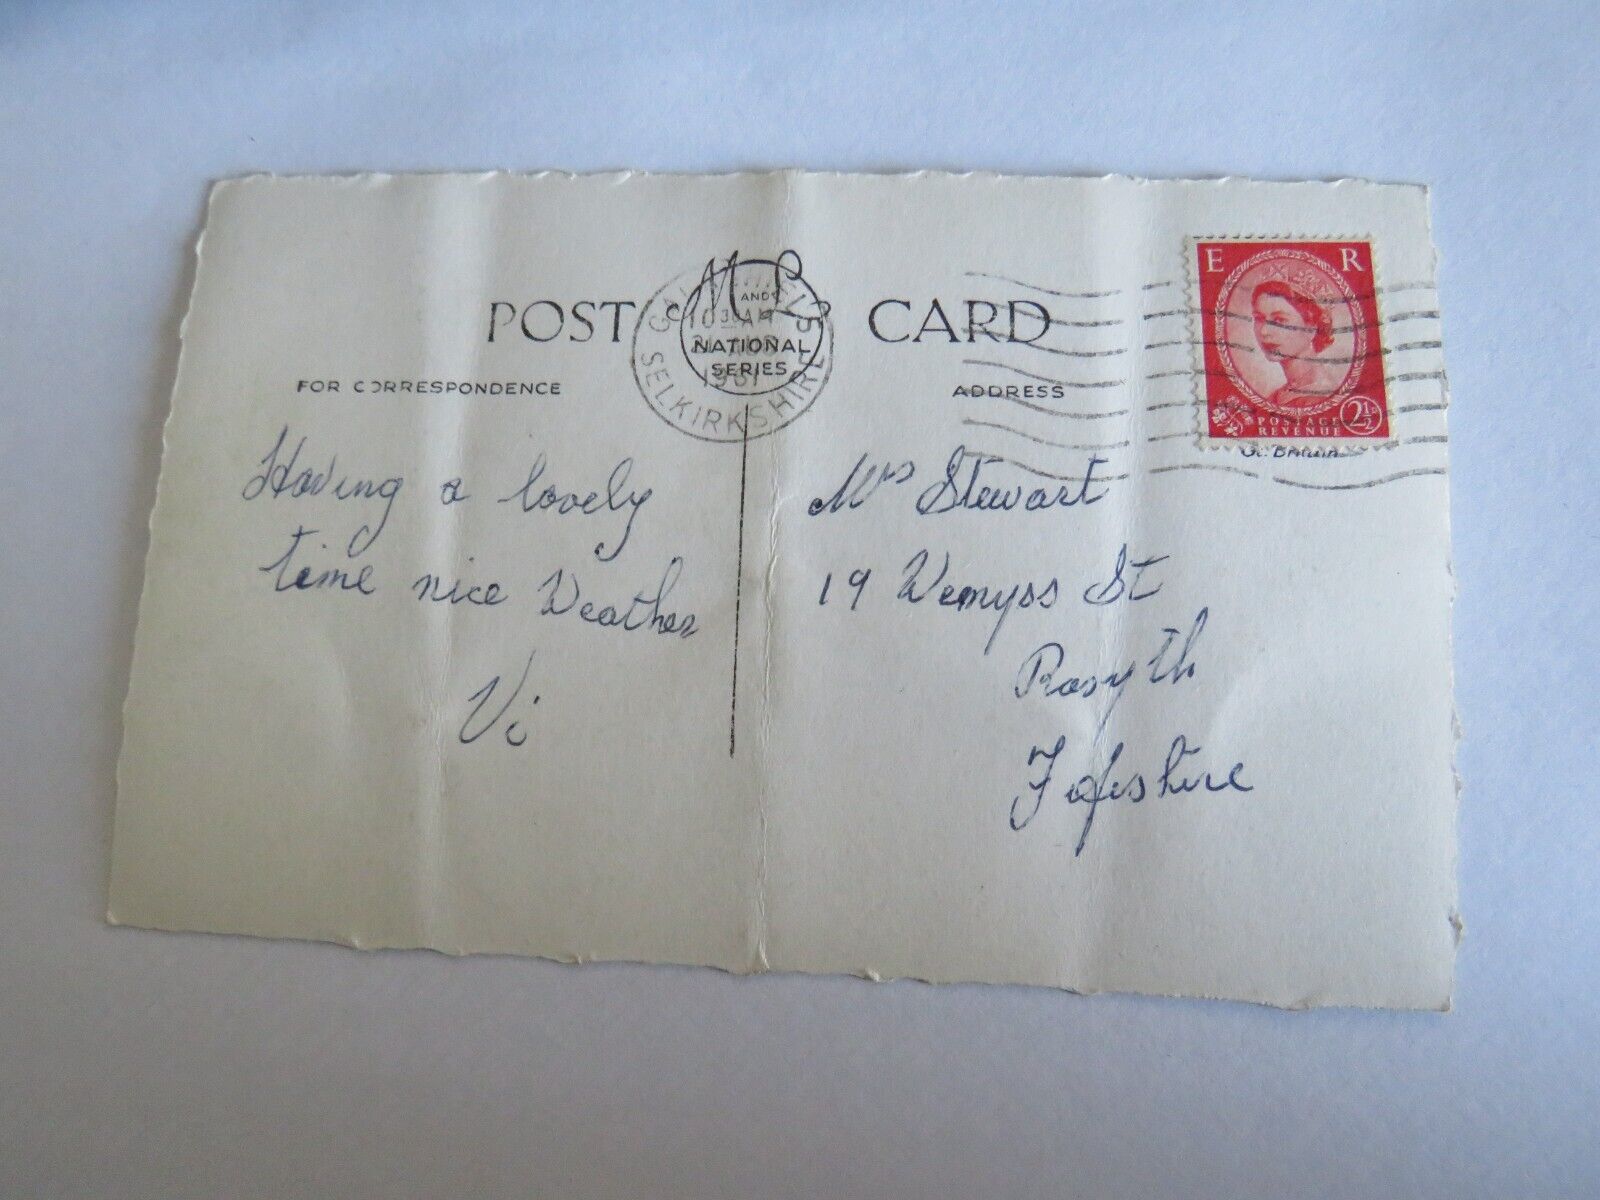 POST CARD
M L
AND
NATIONAL
SERIES
GALASHIELS
SELKIRKSHIRE
10 30 AM
AUG
1961
E R
POSTAGE
REVENUE
2½D
Gt. Britain
FOR CORRESPONDENCE
ADDRESS
Having a lovely
time nice Weather
Vi
Mrs Stewart
19 Wemyss St
Rosyth
Fifeshire